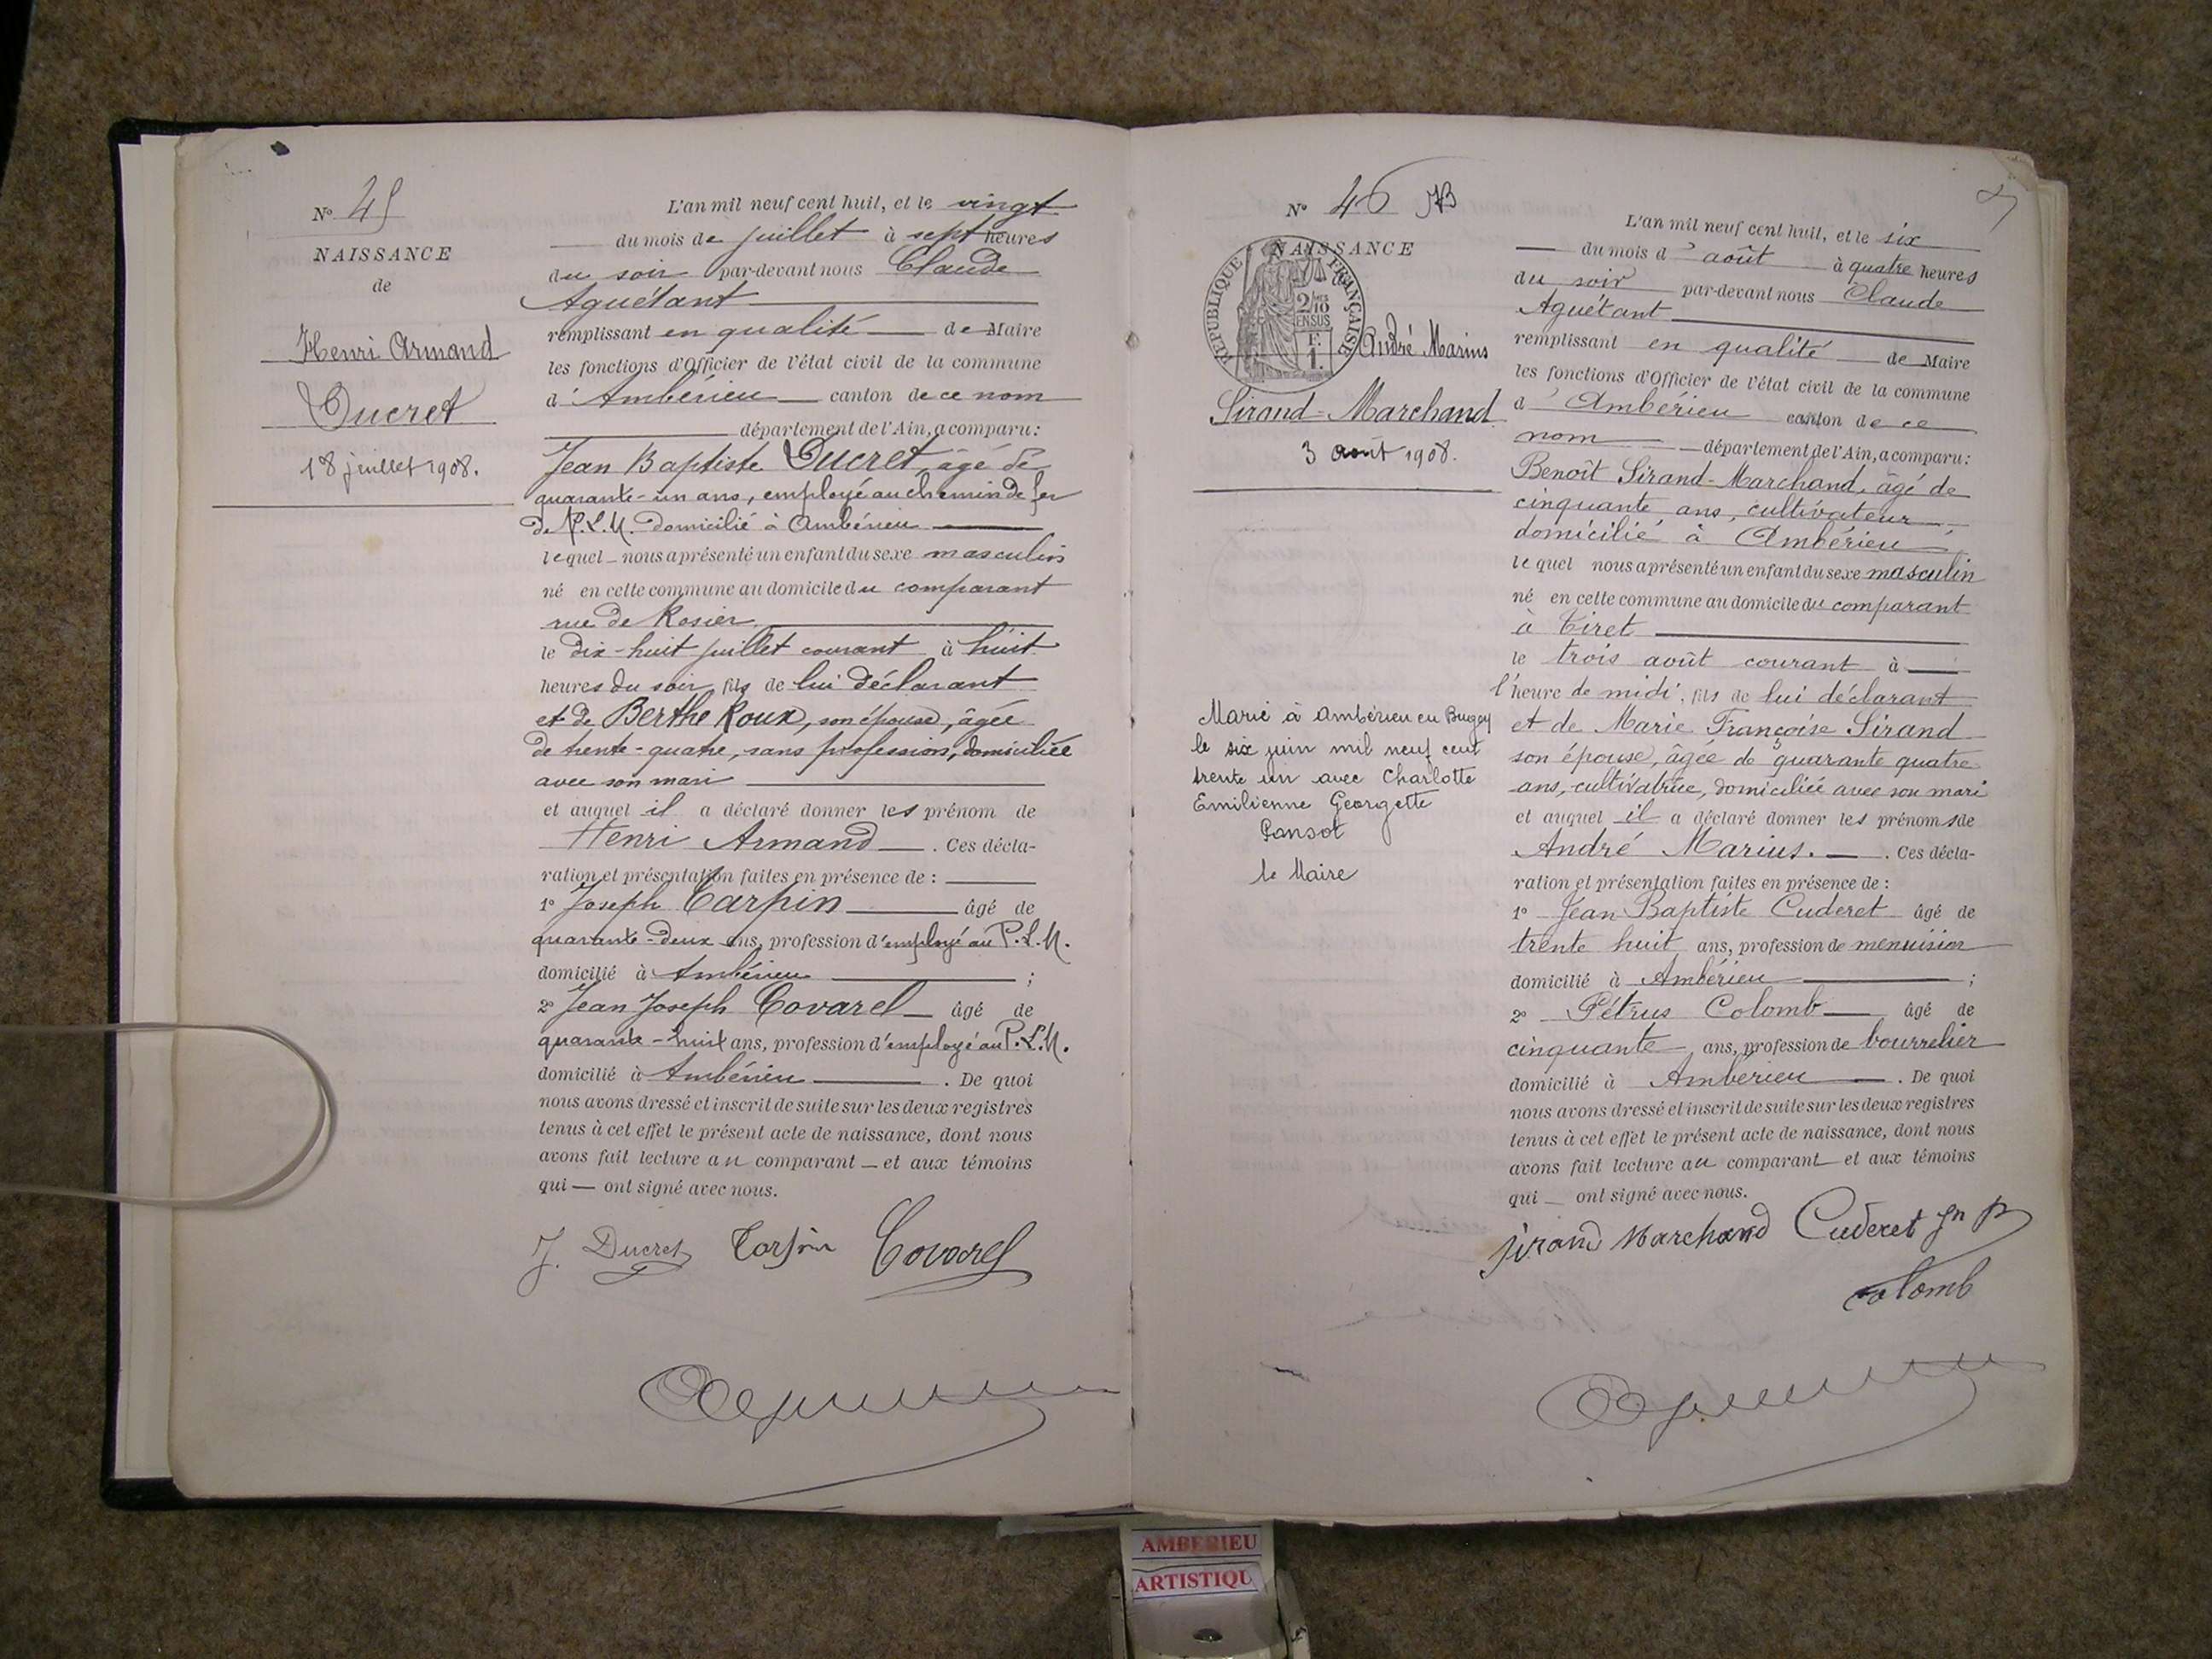 N° 45
NAISSANCE
de
Henri Armand
Ducret
18 juillet 1908.
L'an mil neuf cent huit, et le vingt
du mois de juillet à sept heures
du soir par-devant nous Claude
Aguétant
remplissant en qualité de Maire
les fonctions d'Officier de l'état civil de la commune
d'Ambérieu canton de ce nom
département de l'Ain, a comparu:
Jean Baptiste Ducret, âgé de
quarante-un ans, employé au chemin de fer
de P.L.M. domicilié à Ambérieu
lequel nous a présenté un enfant du sexe masculin
né en cette commune au domicile du comparant
rue de Rosier,
le dix-huit juillet courant à huit
heures du soir, fils de lui déclarant
et de Berthe Roux, son épouse, âgée
de trente-quatre, sans profession, domiciliée
avec son mari
et auquel il a déclaré donner les prénom de
Henri Armand. Ces décla-
ration et présentation faites en présence de :
1° Joseph Carpin âgé de
quarante-deux ans, profession d'employé au P.L.M.
domicilié à Ambérieu ;
2° Jean Joseph Covarel âgé de
quarante-huit ans, profession d'employé au P.L.M.
domicilié à Ambérieu. De quoi
nous avons dressé et inscrit de suite sur les deux registres
tenus à cet effet le présent acte de naissance, dont nous
avons fait lecture au comparant et aux témoins
qui ont signé avec nous.
J. Ducret Carpin Covarel
N° 46
NAISSANCE
RÉPUBLIQUE FRANÇAISE
2/10
EN SUS
F.
1.
André Marius
Sirand-Marchand
3 août 1908.
Marié à Ambérieu en Bugey
le six juin mil neuf cent
trente un avec Charlotte
Emilienne Georgette
Pansot
le Maire
L'an mil neuf cent huit, et le six
du mois d'août à quatre heures
du soir par-devant nous Claude
Aguétant
remplissant en qualité de Maire
les fonctions d'Officier de l'état civil de la commune
d'Ambérieu canton de ce
nom département de l'Ain, a comparu:
Benoît Sirand-Marchand, âgé de
cinquante ans, cultivateur
domicilié à Ambérieu,
lequel nous a présenté un enfant du sexe masculin
né en cette commune au domicile du comparant
à Tiret
le trois août courant à
l'heure de midi, fils de lui déclarant
et de Marie Françoise Sirand
son épouse, âgée de quarante quatre
ans, cultivatrice, domiciliée avec son mari
et auquel il a déclaré donner les prénoms de
André Marius. Ces décla-
ration et présentation faites en présence de :
1° Jean Baptiste Cuderet âgé de
trente huit ans, profession de menuisier
domicilié à Ambérieu ;
2° Pétrus Colomb âgé de
cinquante ans, profession de bourrelier
domicilié à Ambérieu. De quoi
nous avons dressé et inscrit de suite sur les deux registres
tenus à cet effet le présent acte de naissance, dont nous
avons fait lecture au comparant et aux témoins
qui ont signé avec nous.
Sirand Marchand Cuderet Jn B
Colomb
AMBERIEU
ARTISTIQU